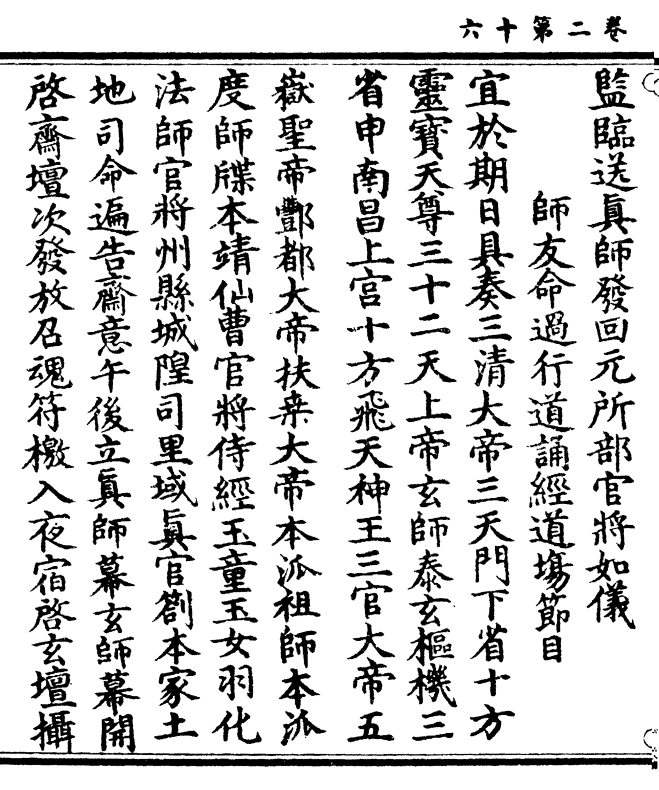 卷二第十六
監臨送眞師發回元所部官將如儀
師友命過行道誦經道場節目
宜於期日具奏三清大帝三天門下省十方
靈寶天尊三十二天上帝玄師泰玄樞機三
省申南昌上宮十方飛天神王三官大帝五
嶽聖帝酆都大帝扶桒大帝本泒祖師本泒
度師牒本靖仙曹官將侍經玉童玉女羽化
法師官將州縣城隍司里域眞官劄本家土
地司命遍告齋意午後立眞師幕玄師幕開
啓齋壇次發放召魂符檄入夜宿啓玄壇攝